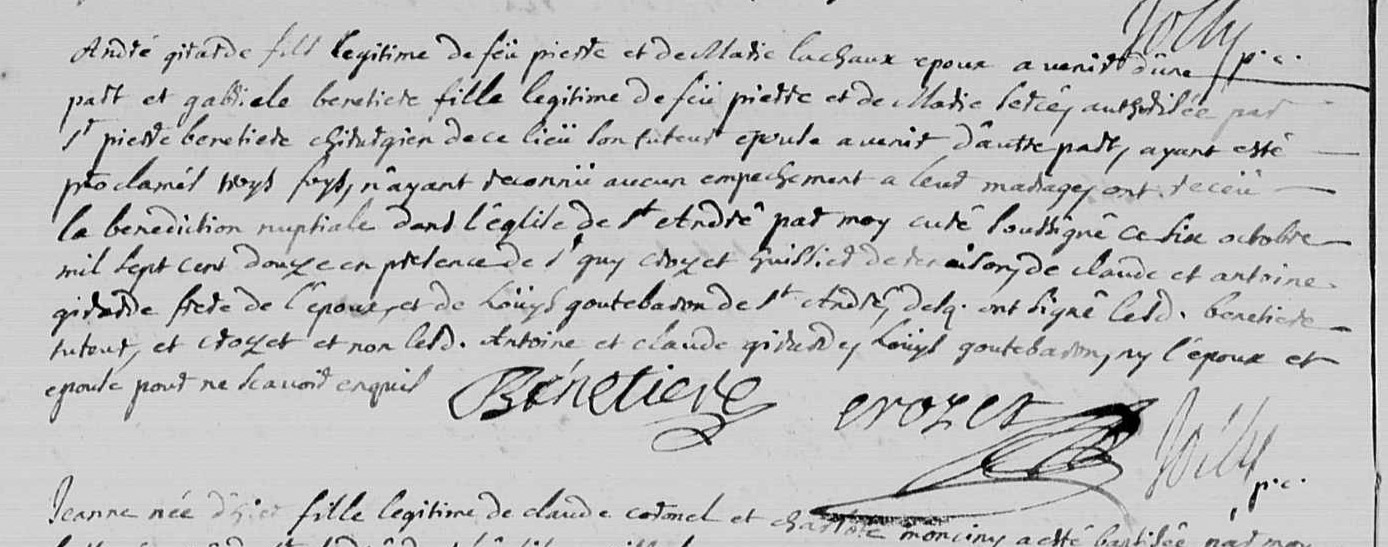 Jolly p. c.
André girarde fils legitime de feü pierre et de Marie lachaux epoux a venir d'üne
part et gabriele benetiere fille legitime de feü pierre et de Marie serce, authorisée par
sr pierre benetiere chirurgien de ce lieü son tuteur epouse a venir d'autre part, ayant esté
proclamés troys foys, n'ayant reconnü aucun empechement a leur mariage, ont receü
la benediction nuptiale dans l'église de st André par moy curé soussigné ce six octobre
mil sept cent douze en presence de sr guy crozet huissier de de claude et antoine
girarde frere de l'epoux, et de Loüys goutebaron de st André, desq. ont signé lesd. benetiere
tuteur, et crozet et non lesd. Antoine et claude girarde, Loüys goutebaron, ny l'epoux et
epouse pour ne scavoir enquis
Bénetiere crozet Jolly
p. c.
Jeanne née d'hier fille legitime de claude coronel et a esté baptisée par moy